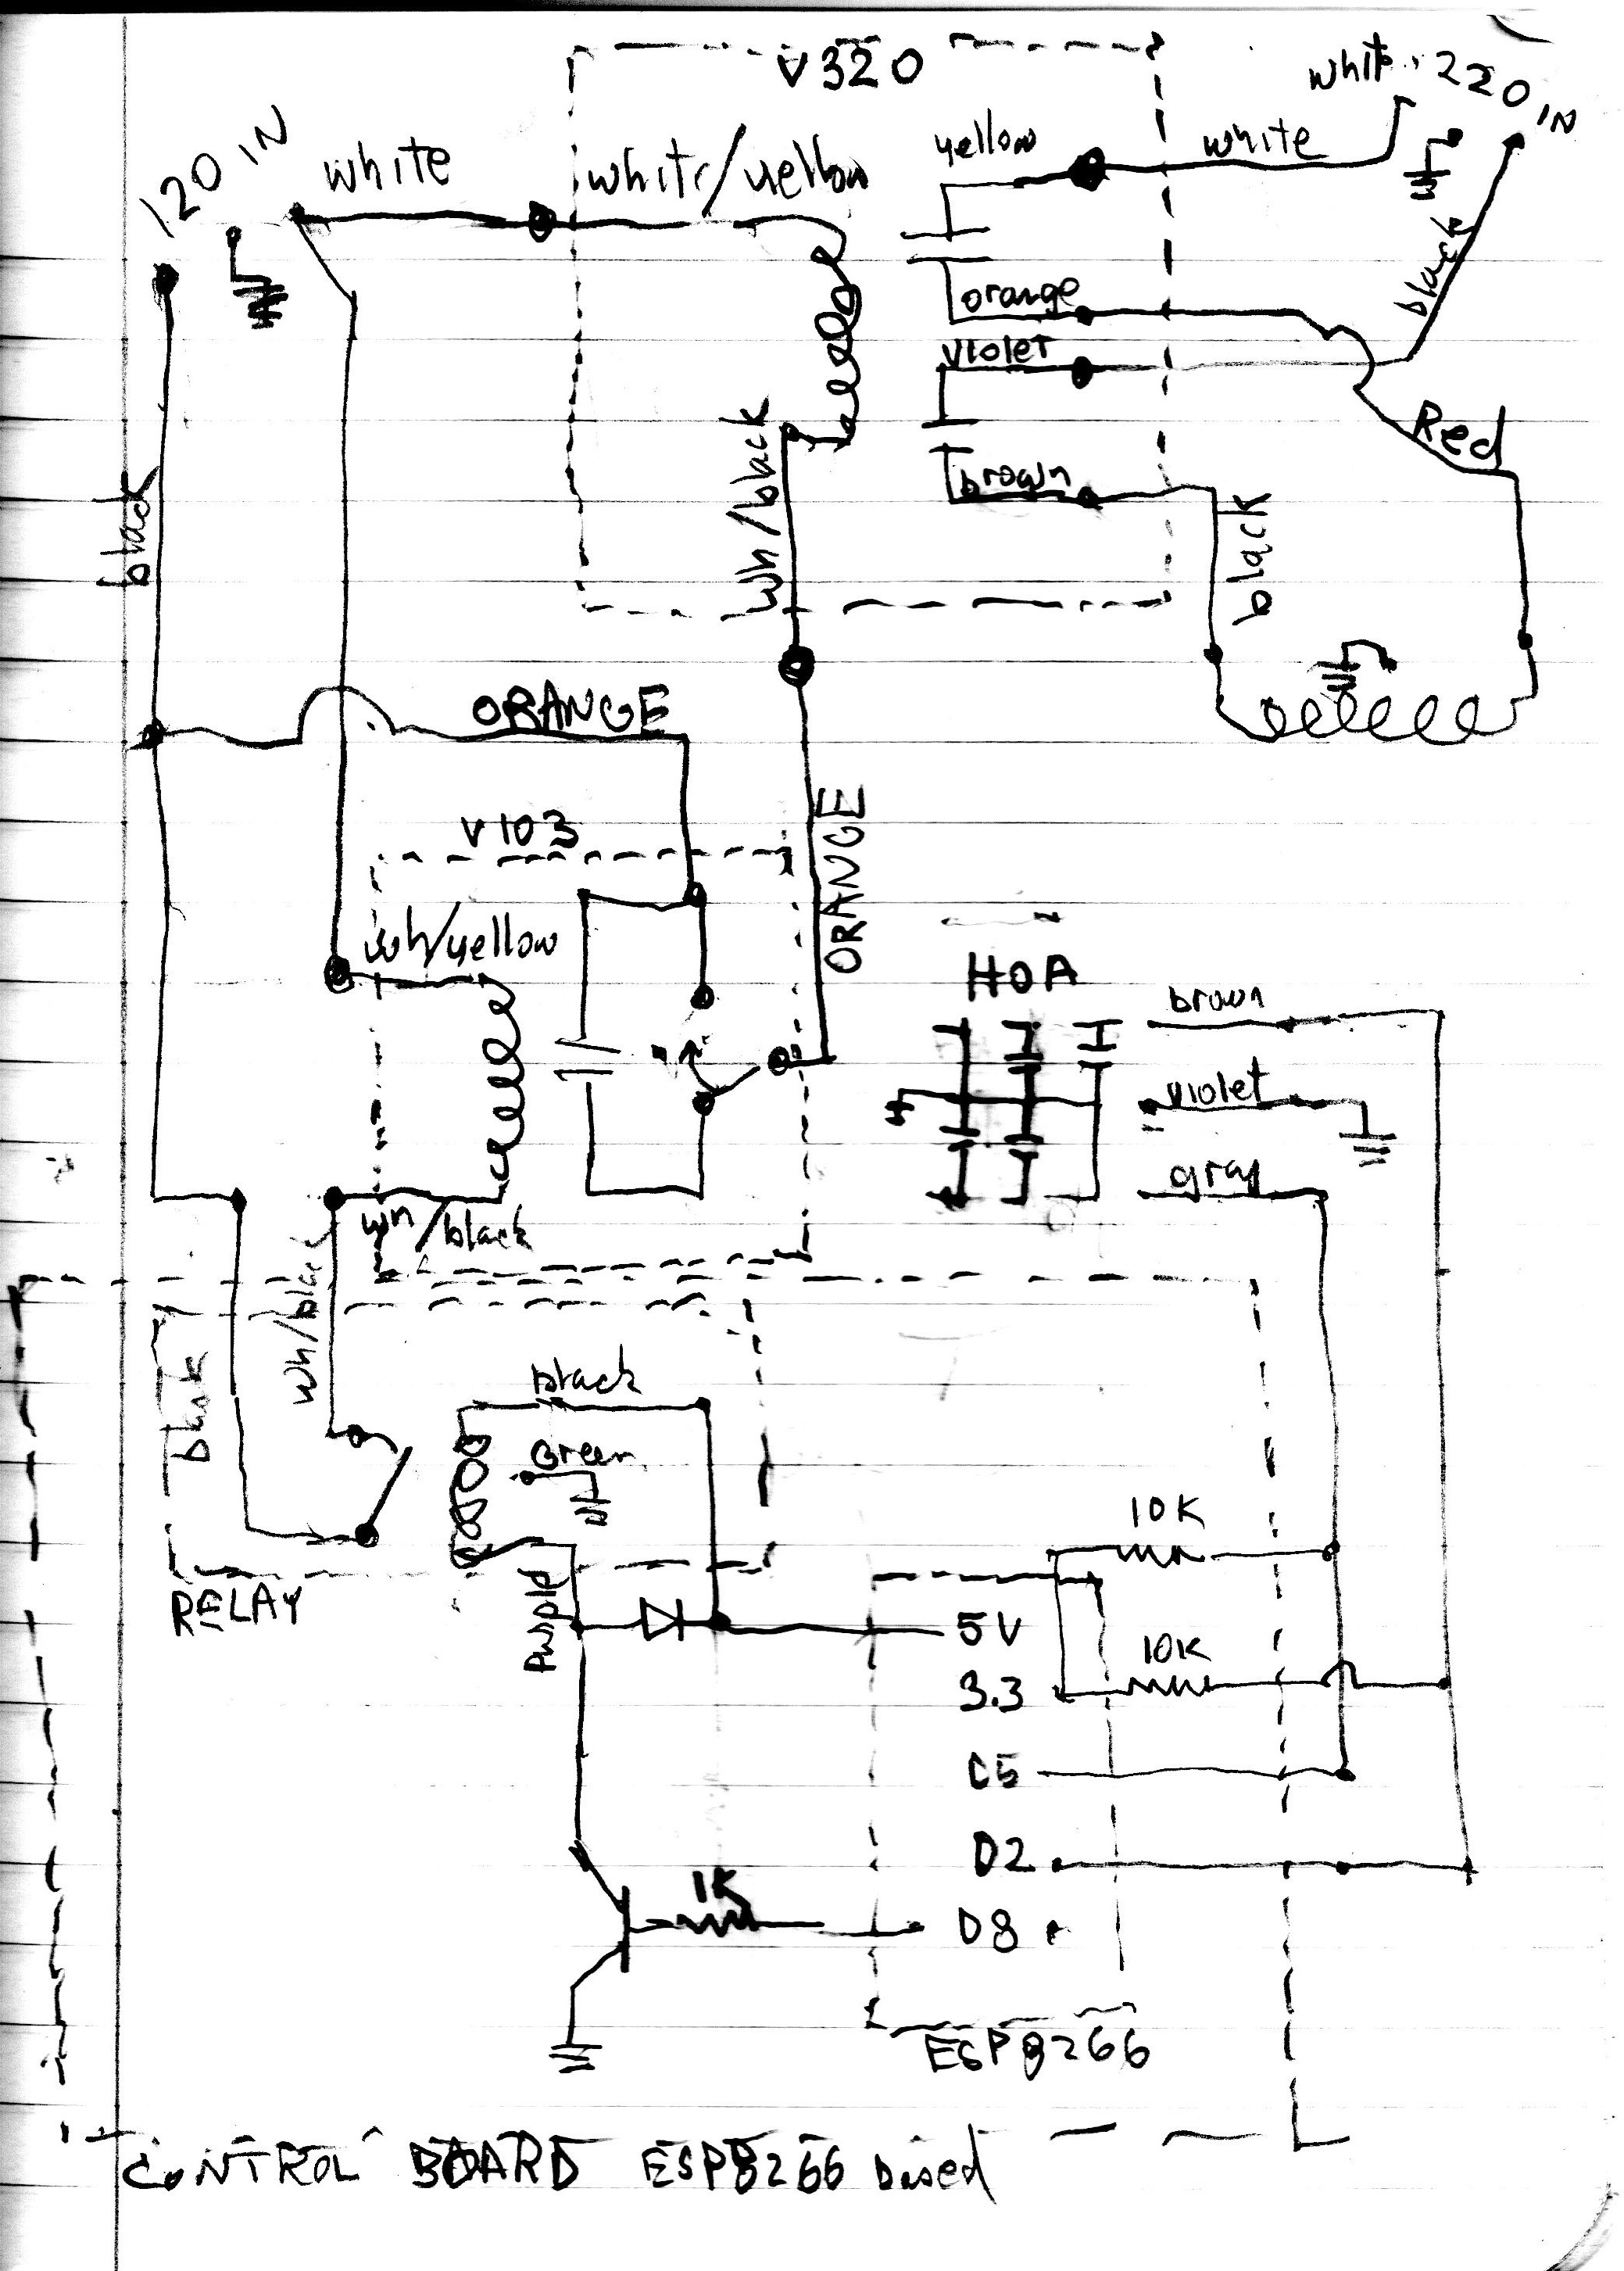 V320
white 220 IN
120 IN
white
white/yellow
yellow
white
black
orange
violet
Red
black
Wh/black
brown
black
ORANGE
V103
ORANGE
wh/yellow
HOA
brown
violet
gray
wh/black
wh/black
black
Green
10K
RELAY
purple
5V
10K
3.3
D2
1K
D8
ESP8266
CONTROL BOARD ESP8266 based